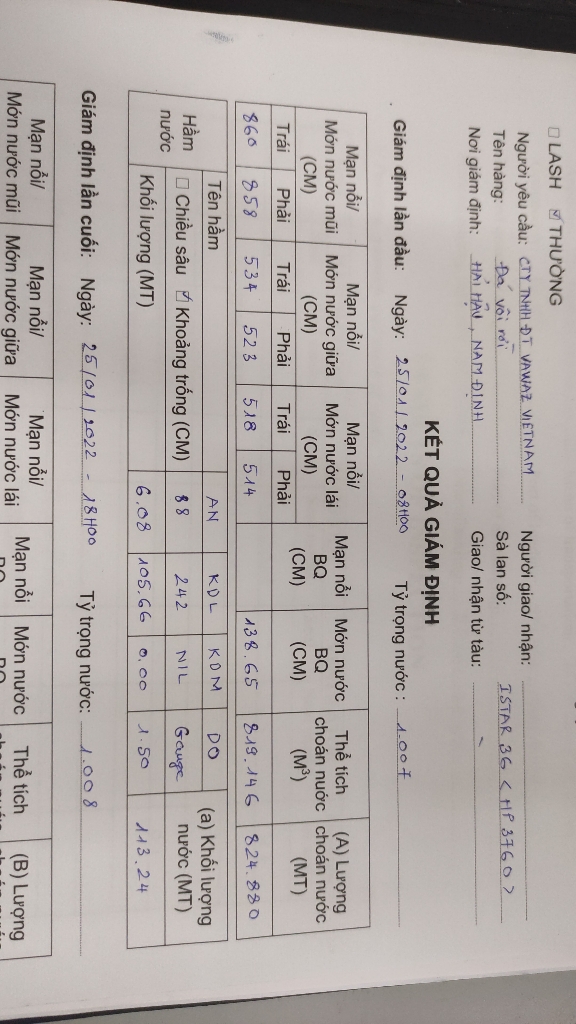 ☐ LASH ☑ THƯỜNG
Người yêu cầu: CTY TNHH ĐT VAWAZ VIETNAM Người giao/ nhận:
Tên hàng: Đá vôi rời Sà lan số: ISTAR 36 < HP 3760 >
Nơi giám định: HẢI HẬU, NAM ĐỊNH Giao/ nhận từ tàu:
KẾT QUẢ GIÁM ĐỊNH
Giám định lần đầu: Ngày: 25/01/2022 - 08H00 Tỷ trọng nước: 1.007
Mạn nổi/ Mạn nổi/ Mạn nổi/ Mạn nổi Món nước Thể tích (A) Lượng
Món nước mũi Món nước giữa Món nước lái BQ BQ choán nước choán nước
(CM) (CM) (CM) (CM) (CM) (M³) (MT)
Trái Phải Trái Phải Trái Phải
860 858 534 523 518 514 138.65 819.146 824.880
Hầm nước Tên hầm AN KDL KDM DO (a) Khối lượng nước (MT)
☐ Chiều sâu ☑ Khoảng trống (CM) 88 242 NIL Gauge
Khối lượng (MT) 6.08 105.66 0.00 1.50 113.24
Giám định lần cuối: Ngày: 25/01/2022 - 18H00 Tỷ trọng nước: 1.008
Mạn nổi/ Mạn nổi/ Mạn nổi/ Mạn nổi Món nước Thể tích (B) Lượng
Món nước mũi Món nước giữa Món nước lái BQ BQ choán nước choán nước